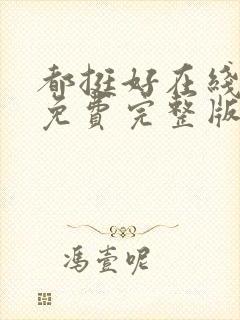 都挺好在线
免费完整版
冯壹呢